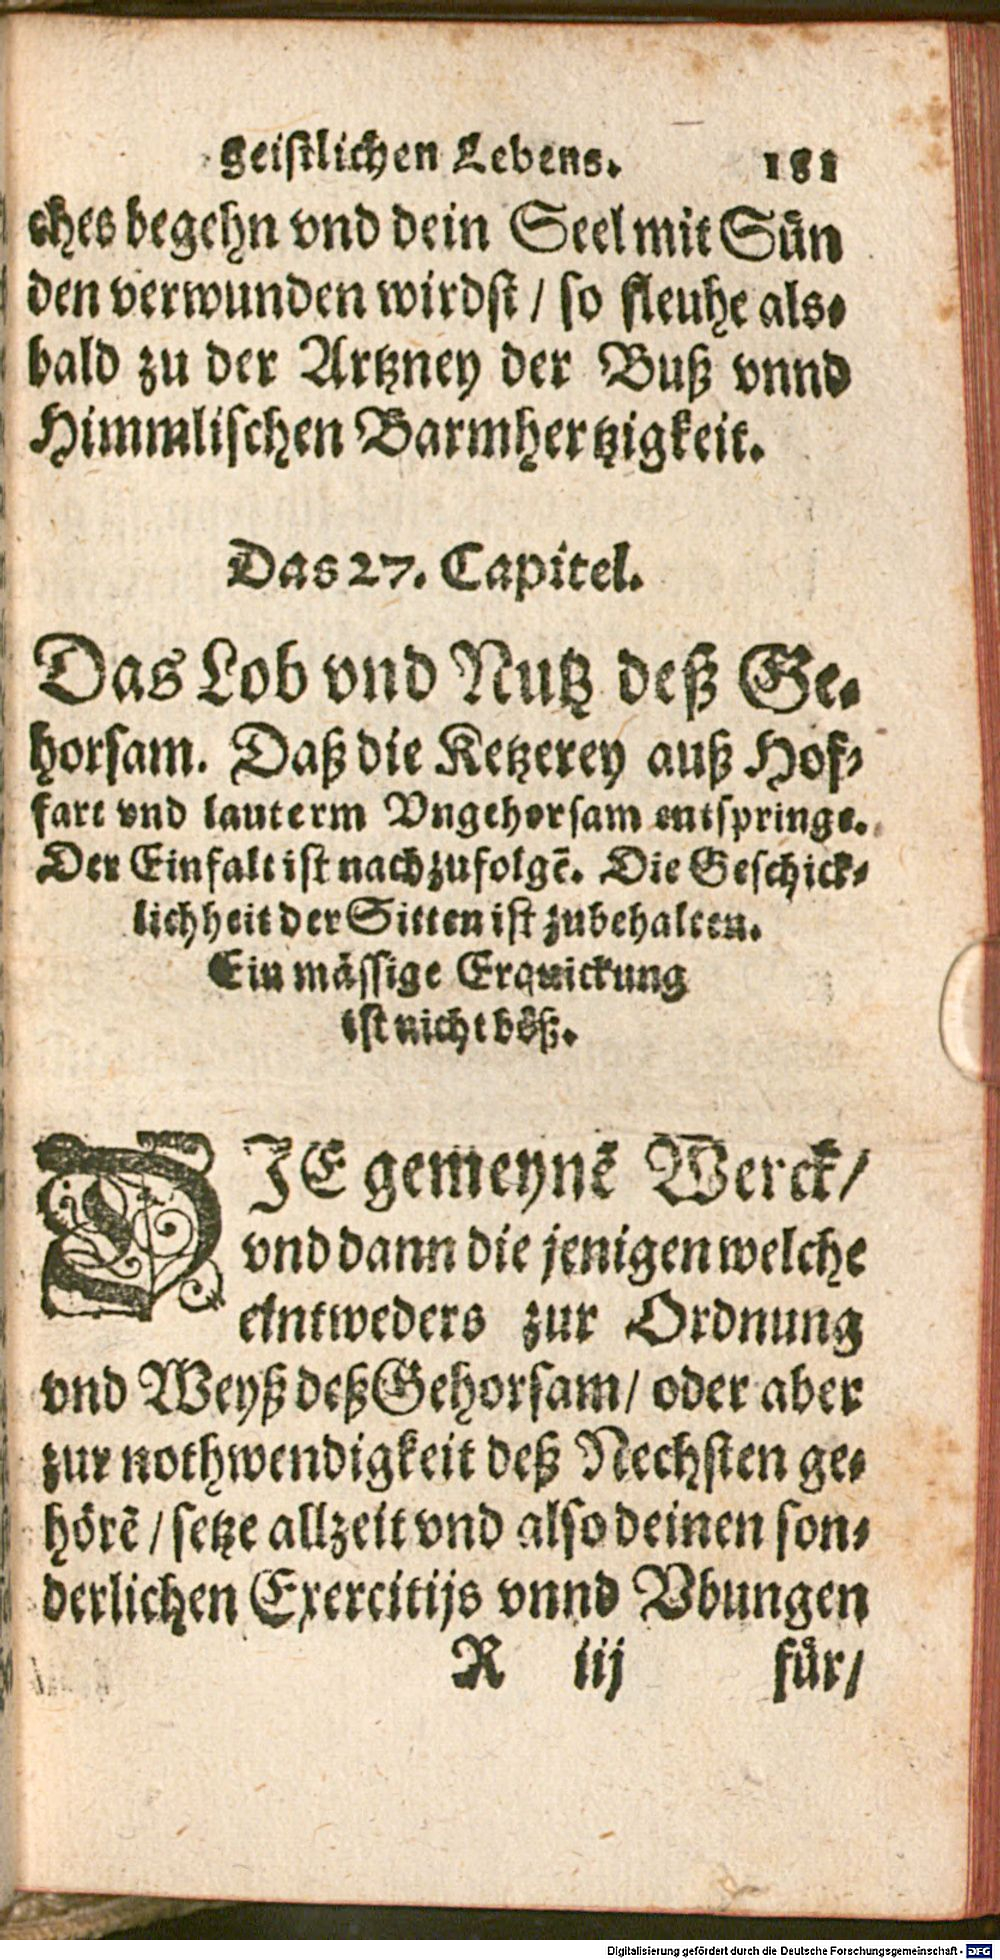 geistlichen Lebens. 181
ches begehn vnd dein Seel mit Sün
den verwunden wirdst / so fleuhe als⸗
bald zu der Artzney der Buß vnnd
Himmlischen Barmhertzigkeit.
Das 27. Capitel.
Das Lob vnd Nutz deß Ge⸗
horsam. Daß die Ketzerey auß Hof⸗
fart vnd lauterm Vngehorsam entspringe.
Der Einfalt ist nachzufolgē. Die Geschick⸗
lichheit der Sitten ist zubehalten.
Ein mässige Erquickung
ist nicht böß.
DIE gemeynē Werck /
vnd dann die jenigen welche
eintweders zur Ordnung
vnd Weyß deß Gehorsam / oder aber
zur nothwendigkeit deß Nechsten ge⸗
hörē / setze allzeit vnd also deinen son⸗
derlichen Exercitijs vnnd Vbungen
R iij für /
Digitalisierung gefördert durch die Deutsche Forschungsgemeinschaft - DFG